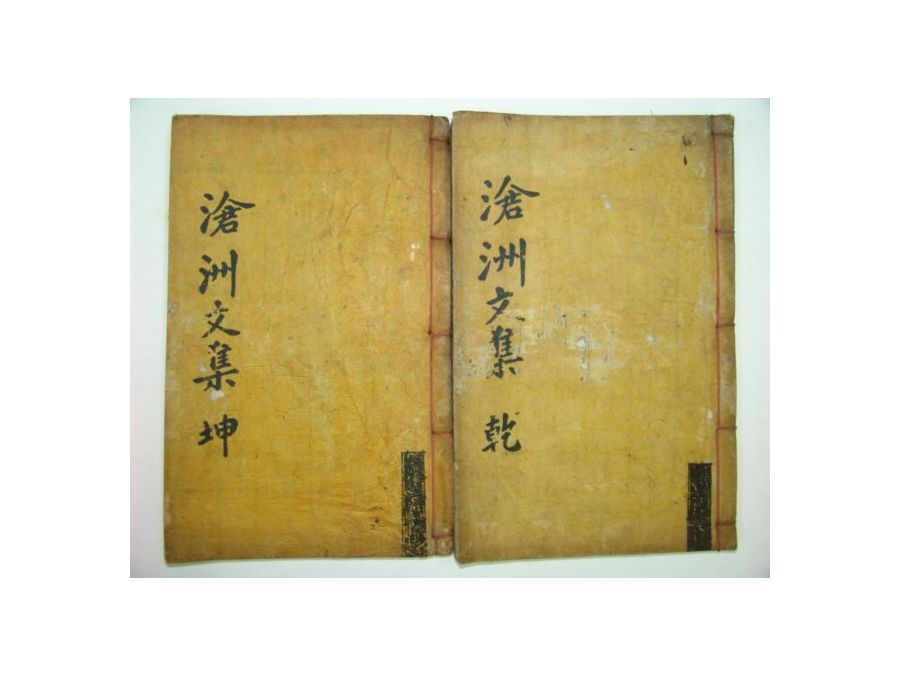 滄洲文集 乾
滄洲文集 坤